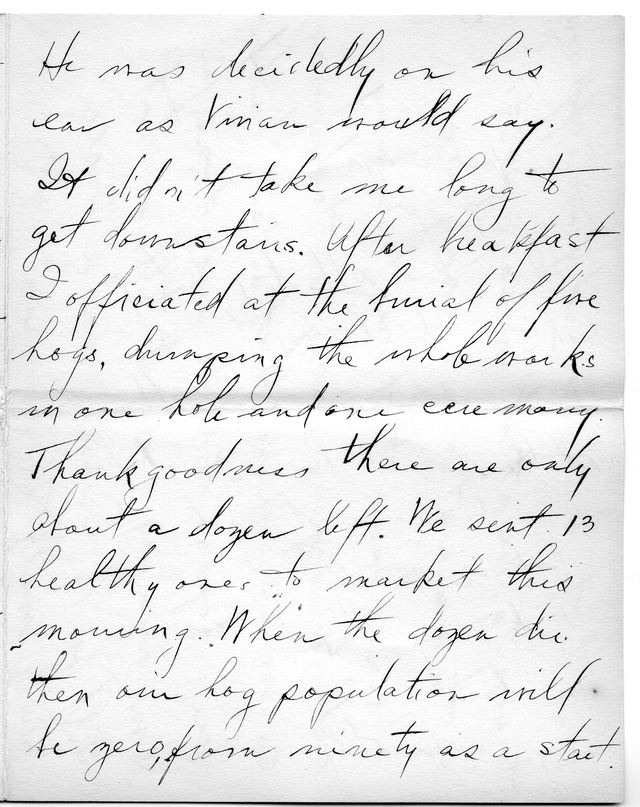 He was decidedly on his
ear as Vivian would say.
It didn't take me long to
get downstairs. After breakfast
I officiated at the burial of five
hogs, dumping the whole works
in one hole and one ceremony.
Thank goodness there are only
about a dozen left. We sent 13
healthy ones to market this
morning. When the dozen die
then our hog population will
be zero, from ninety as a start.